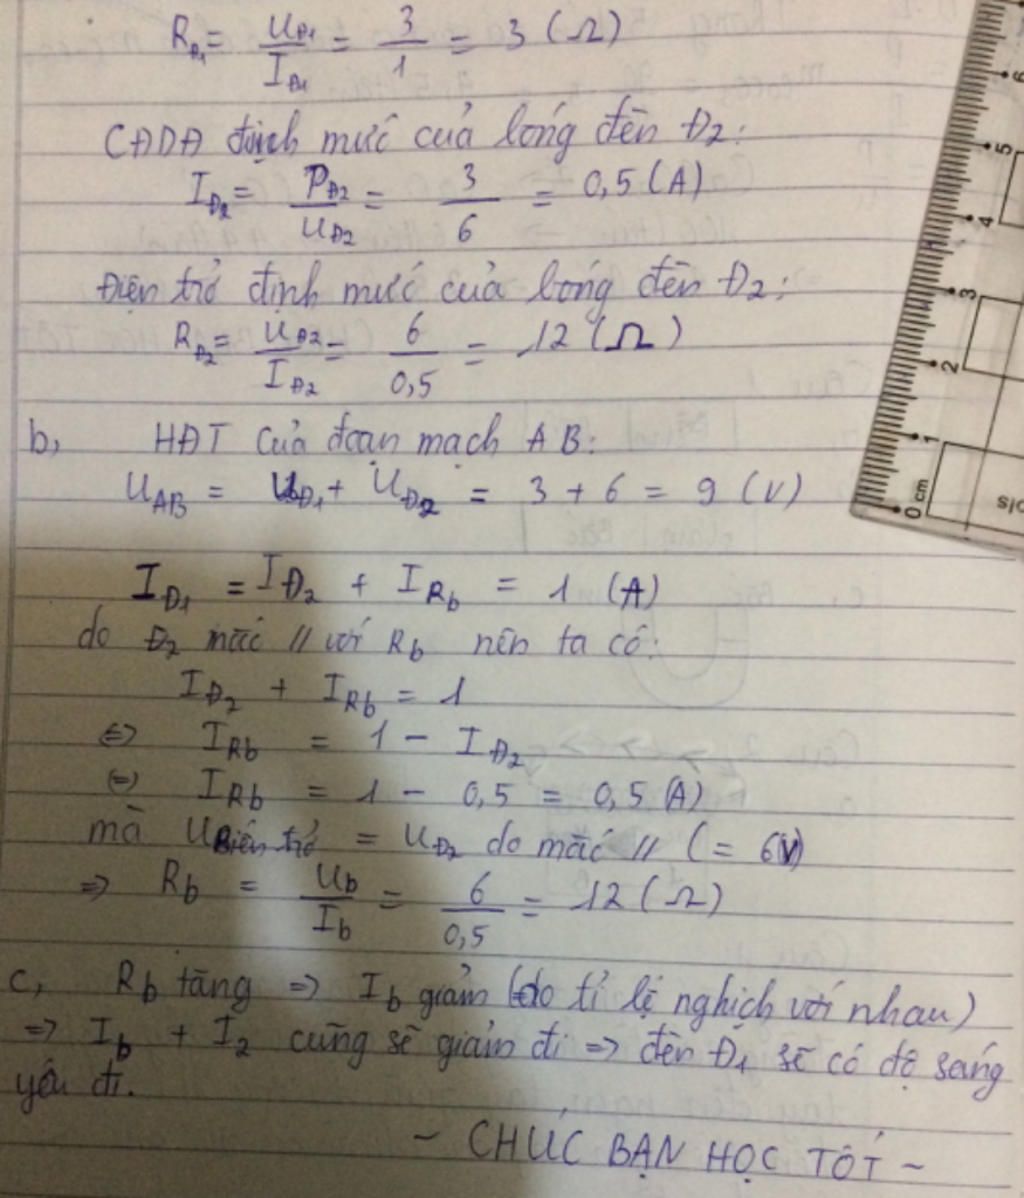 R_Đ1 = U_Đ1/I_Đ1 = 3/1 = 3 (Ω)
CĐDĐ định mức của bóng đèn Đ2:
I_Đ2 = P_Đ2/U_Đ2 = 3/6 = 0,5 (A)
Điện trở định mức của bóng đèn Đ2:
R_Đ2 = U_Đ2/I_Đ2 = 6/0,5 = 12 (Ω)
b, HĐT của đoạn mạch AB:
U_AB = U_Đ1 + U_Đ2 = 3 + 6 = 9 (V)
I_Đ1 = I_Đ2 + I_Rb = 1 (A)
do Đ2 mắc // với Rb nên ta có:
I_Đ2 + I_Rb = 1
⇔ I_Rb = 1 - I_Đ2
⇔ I_Rb = 1 - 0,5 = 0,5 (A)
mà U_Biến trở = U_Đ2 do mắc // (= 6V)
⇒ R_b = U_b/I_b = 6/0,5 = 12 (Ω)
c, R_b tăng ⇒ I_b giảm (do tỉ lệ nghịch với nhau)
⇒ I_b + I_2 cũng sẽ giảm đi ⇒ đèn Đ1 sẽ có độ sáng
yếu đi.
- CHÚC BẠN HỌC TỐT -
0 cm 1 2 3 4 5 6